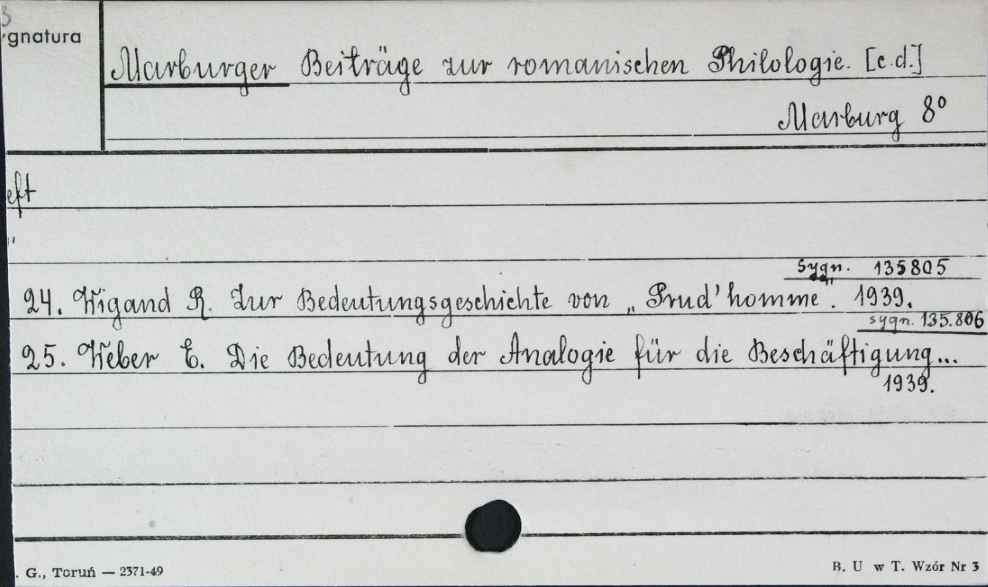 ignatura
Marburger Beiträge zur romanischen Philologie. [c.d.]
Marburg 8°
eft
"
sygn. 135805
24. Wigand R. Zur Bedeutungsgeschichte von „Prud'homme". 1939.
sygn. 135.806
25. Weber E. Die Bedeutung der Analogie für die Beschäftigung...
1939.
. G., Toruń — 2371-49
B. U w T. Wzór Nr 3